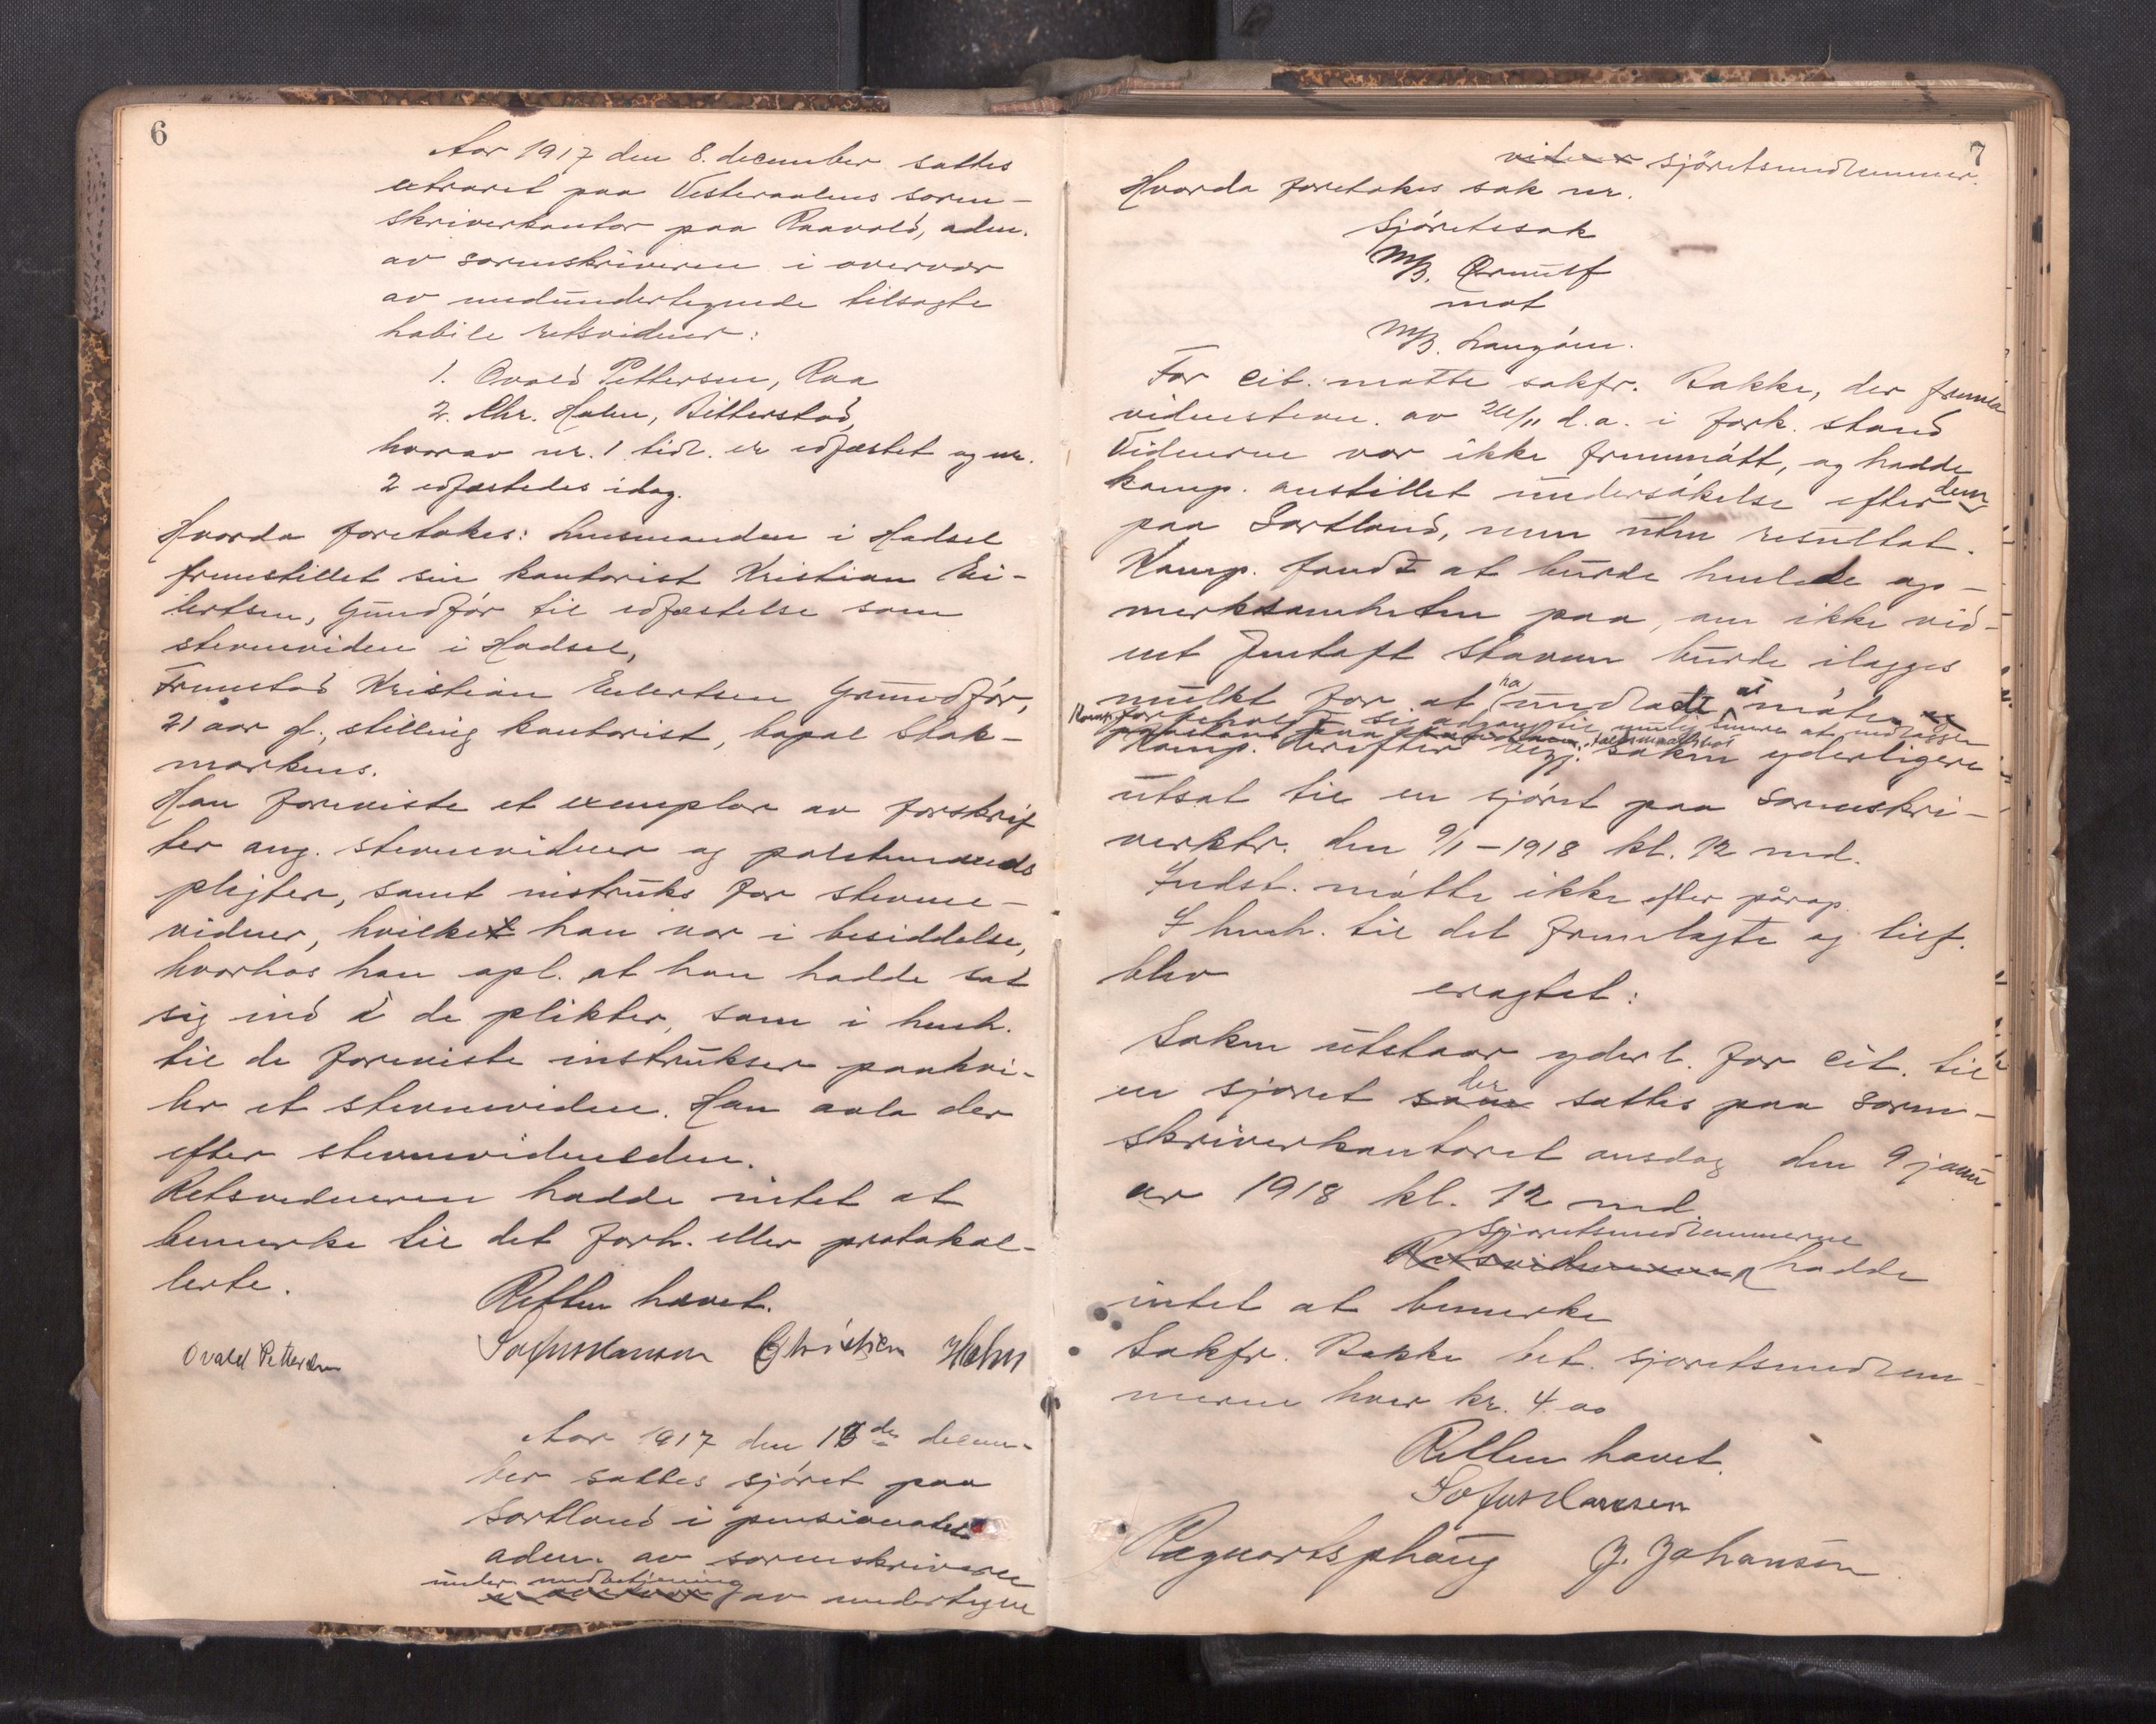 6
Aar 1917 den 8. december sattes
extraret paa Vesteraalens soren-
skriverkontor paa Raavold, adm.
av sorenskriveren i overvær
av medundertegnede tilsagte
habile retsvidner:
1. Ovald Pettersen, Raa
2. Chr. Holm, Bitterstad,
hvorav nr. 1 tidl. er edfæstet og nr.
2 edfæstedes idag.
Hvorda foretokes: Lensmanden i Hadsel
fremstillet sin kontorist Kristian Ei-
lertsen, Grundfør til edfæstelse som
stevnevidne i Hadsel,
Fremstod Kristian Eilertsen Grundfør,
21 aar gl., stilling kontorist, bopæl Stok-
marknes.
Han foreviste et exemplar av forskrif
ter ang. stevnevidner og polstemænds
pligter, samt instruks for stevne-
vidner, hvilket han var i besiddelse,
hvorhos han opl. at han hadde sat
sig ind i de plikter, som i henh.
til de foreviste instrukser paahvi-
ler et stevnevidne. Han avla der
efter stevnevidneeden.
Retsvidnerne hadde intet at
bemerke til det forh. eller protokol-
lerte.
Retten hævet.
Ovald Pettersen Sofus Hansen Christian Holm
Aar 1917 den 13de decem-
ber sattes sjöret paa
Sortland i pensionatet
adm. av sorenskriveren
under medbetjening
av undertegne
7
vidner sjöretsmedlemmer.
Hvorda foretokes sak nr.
Sjöretssak
M/B. Ørnulf
mot
M/B. Langöen.
For cit. møtte sakfr. Bakke, der fremla
vidnestevn. av 24/11 d.a. i fork. stand
Vidnerne var ikke fremmött, og hadde
komp. anstillet undersökelse efter dem
paa Sortland, men uten resultat.
Komp. fandt at burde henlede op-
merksomheten paa, om ikke vid-
net Jentoft Staven burde ilægges
mulkt for at ha undladt at möte
Komp. forbeholdt sig adgang til mulig senere at nedlægge
paastand paa
Komp. derefter begj. saken yderligere
utsat til en sjöret paa sorenskri-
verktr. den 9/1-1918 kl. 12 md.
Indst. mötte ikke efter pårop.
I henh. til det fremlagte og tilf.
blev
eragtet:
Saken utstaar yderl. for cit. til
en sjöret der sættes paa soren-
skriverkontoret onsdag den 9 janu
ar 1918 kl. 12 md.
sjöretsmedlemmerne
Retsvidnerne hadde
intet at bemerke
Sakfr. Bakke bet. sjöretsmedlem-
merne hver kr. 4.00
Retten hævet.
Sofus Hansen
J. Johansen